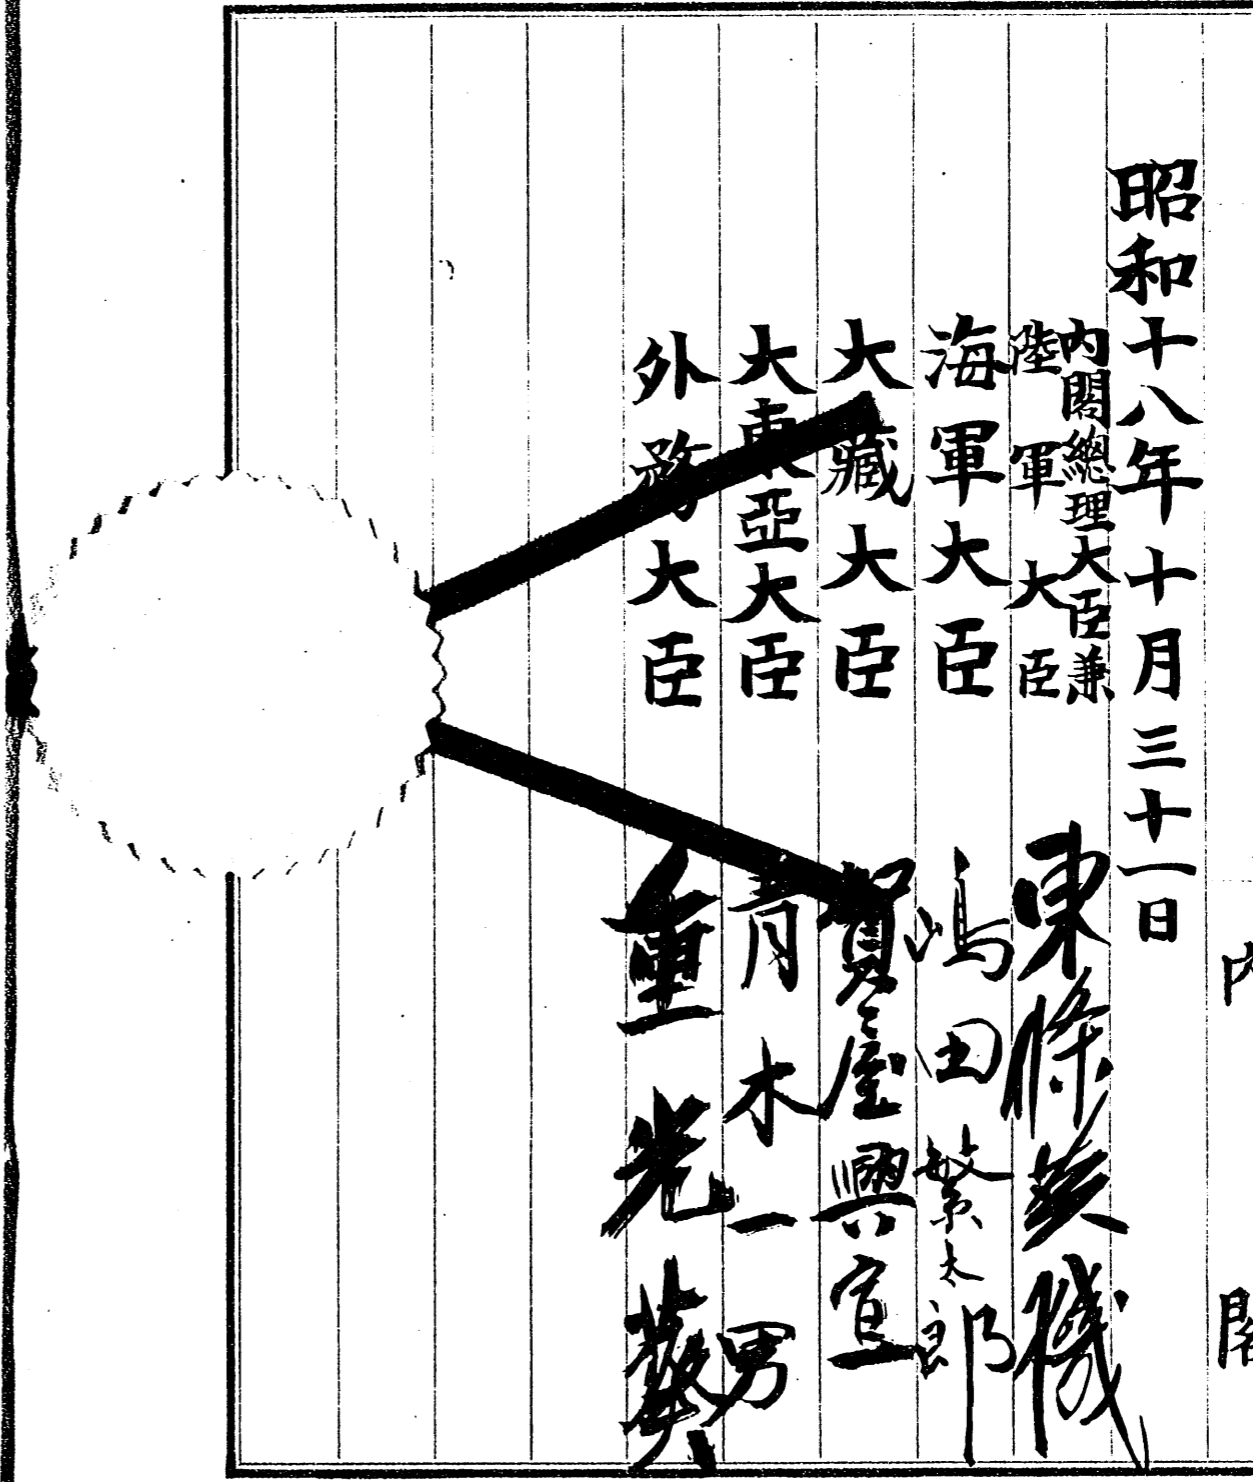 内閣
昭和十八年十月三十一日
內閣總理大臣兼
陸軍大臣 東條英機
海軍大臣 嶋田繁太郎
大藏大臣 賀屋興宣
大東亞大臣 青木一男
外務大臣 重光葵